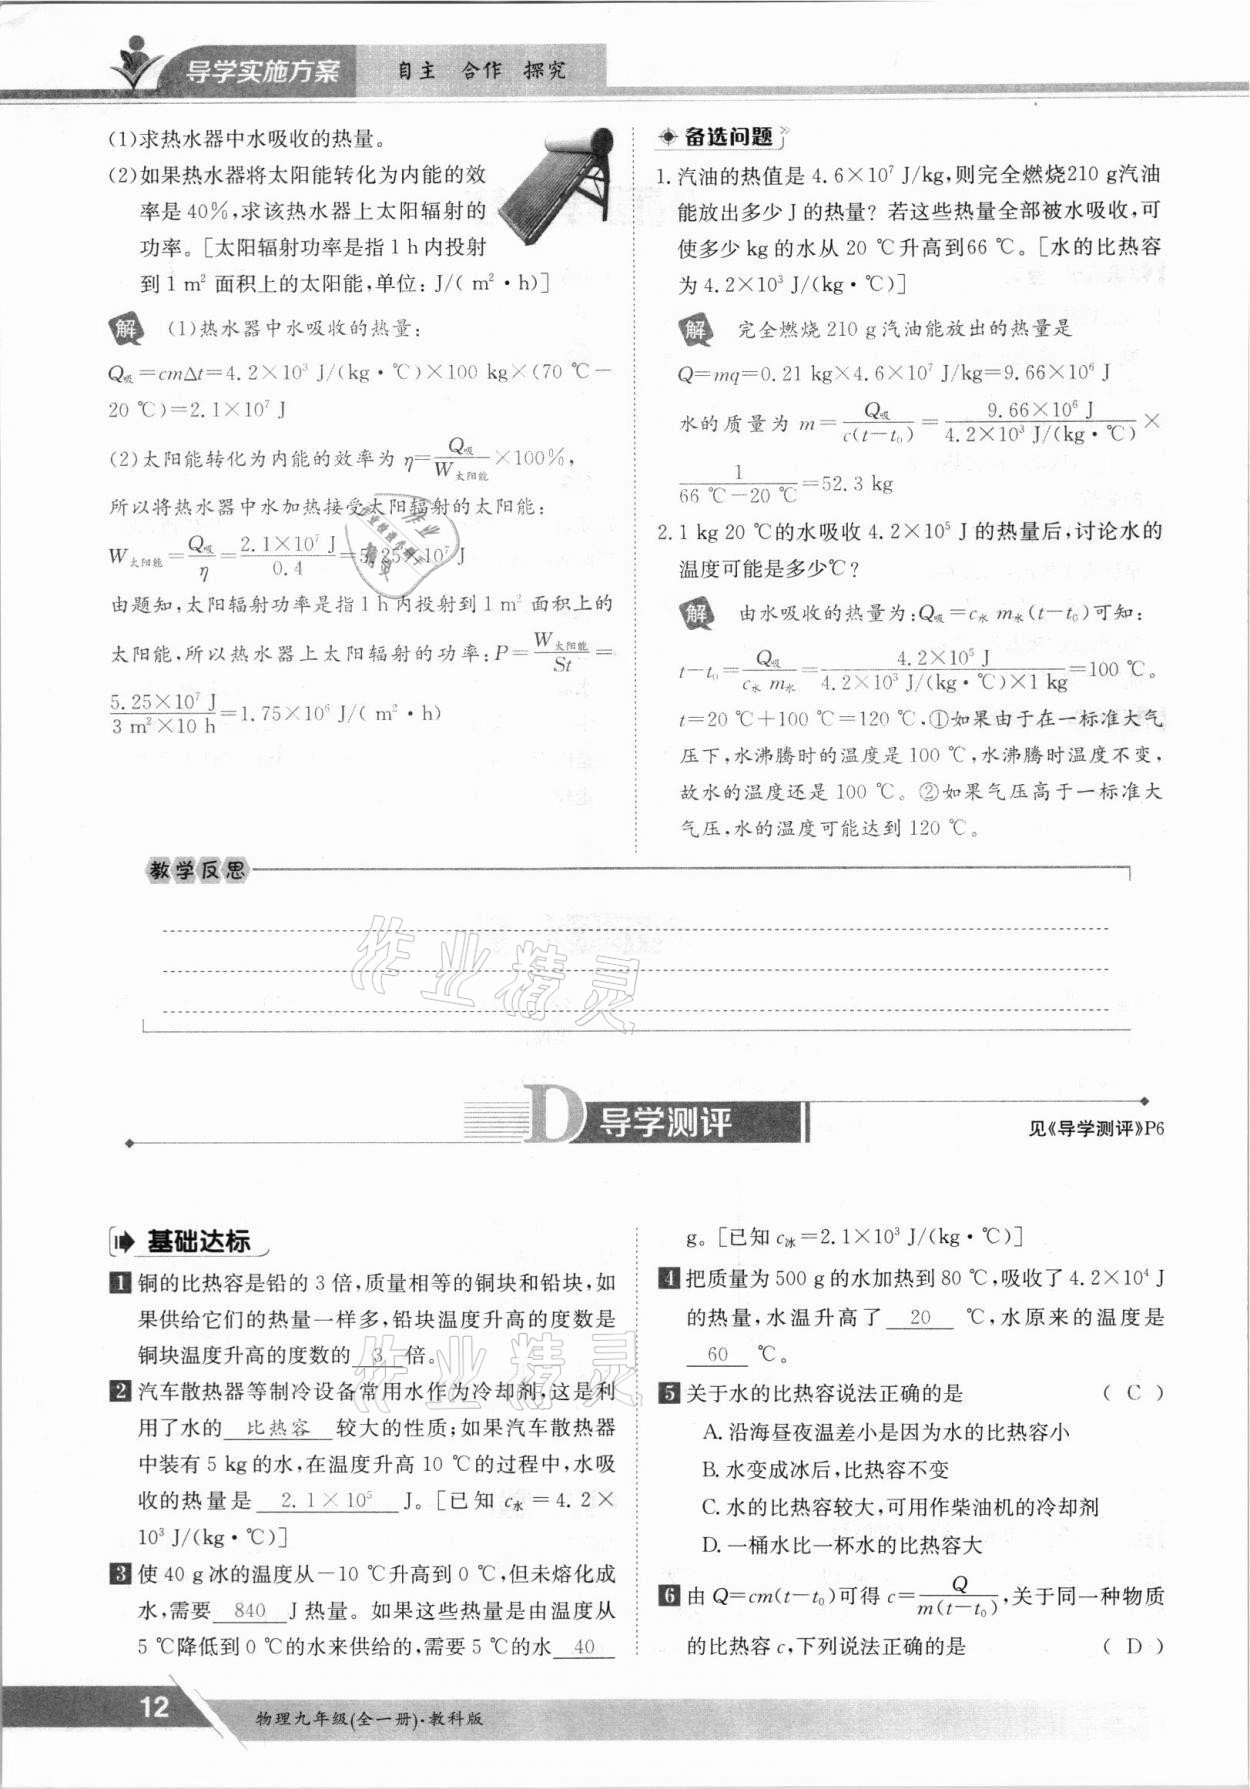 导学实施方案 自主 合作 探究
(1)求热水器中水吸收的热量。
(2)如果热水器将太阳能转化为内能的效
率是40%,求该热水器上太阳辐射的
功率。[太阳辐射功率是指1 h内投射
到1 m²面积上的太阳能,单位: J/( m²·h)]
解 (1)热水器中水吸收的热量:
Q吸=cmΔt=4.2×10³ J/(kg·℃)×100 kg×(70 ℃-
20 ℃)=2.1×10⁷ J
(2)太阳能转化为内能的效率为 η=Q吸/W太阳能×100%,
所以将热水器中水加热接受太阳辐射的太阳能:
W太阳能=Q吸/η=2.1×10⁷ J/0.4=5.25×10⁷ J
由题知,太阳辐射功率是指1 h内投射到1 m²面积上的
太阳能,所以热水器上太阳辐射的功率:P=W太阳能/St=
5.25×10⁷ J/3 m²×10 h=1.75×10⁶ J/( m²·h)
备选问题
1.汽油的热值是4.6×10⁷ J/kg,则完全燃烧210 g汽油
能放出多少J的热量? 若这些热量全部被水吸收,可
使多少kg的水从20 ℃升高到66 ℃。[水的比热容
为4.2×10³ J/(kg·℃)]
解 完全燃烧210 g汽油能放出的热量是
Q=mq=0.21 kg×4.6×10⁷ J/kg=9.66×10⁶ J
水的质量为 m=Q吸/c(t-t₀)=9.66×10⁶ J/4.2×10³ J/(kg·℃)×
1/66 ℃-20 ℃=52.3 kg
2.1 kg 20 ℃的水吸收4.2×10⁵ J的热量后,讨论水的
温度可能是多少℃?
解 由水吸收的热量为:Q吸=c水 m水(t-t₀)可知:
t-t₀=Q吸/c水 m水=4.2×10⁵ J/4.2×10³ J/(kg·℃)×1 kg=100 ℃。
t=20 ℃+100 ℃=120 ℃,①如果由于在一标准大气
压下,水沸腾时的温度是100 ℃,水沸腾时温度不变,
故水的温度还是100 ℃。②如果气压高于一标准大
气压,水的温度可能达到120 ℃。
教学反思
作业精灵
D 导学测评
见《导学测评》P6
基础达标
1 铜的比热容是铅的3倍,质量相等的铜块和铅块,如
果供给它们的热量一样多,铅块温度升高的度数是
铜块温度升高的度数的 3 倍。
2 汽车散热器等制冷设备常用水作为冷却剂,这是利
用了水的 比热容 较大的性质;如果汽车散热器
中装有5 kg的水,在温度升高10 ℃的过程中,水吸
收的热量是 2.1×10⁵ J。[已知 c水=4.2×
10³ J/(kg·℃)]
3 使40 g冰的温度从-10 ℃升高到0 ℃,但未熔化成
水,需要 840 J热量。如果这些热量是由温度从
5 ℃降低到0 ℃的水来供给的,需要5 ℃的水 40
g。[已知 c冰=2.1×10³ J/(kg·℃)]
4 把质量为500 g的水加热到80 ℃,吸收了4.2×10⁴ J
的热量,水温升高了 20 ℃,水原来的温度是
60 ℃。
5 关于水的比热容说法正确的是 ( C )
A.沿海昼夜温差小是因为水的比热容小
B.水变成冰后,比热容不变
C.水的比热容较大,可用作柴油机的冷却剂
D.一桶水比一杯水的比热容大
6 由Q=cm(t-t₀)可得c=Q/m(t-t₀),关于同一种物质
的比热容c,下列说法正确的是 ( D )
作业精灵
12 物理九年级(全一册)·教科版